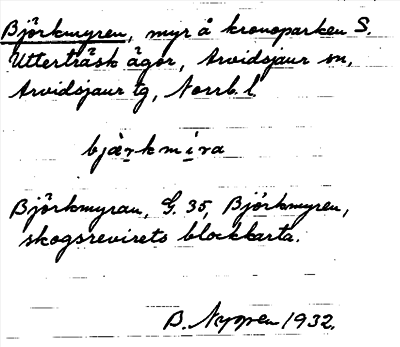 Björkmyren, myr å kronoparken S.
Utterträsk ägor, Arvidsjaur sn,
Arvidsjaur tg, Norrb. l.
bjærkmira
Björkmyran, G. 35, Björkmyren,
skogsrevirets blockkarta.
B. Nyman 1932.